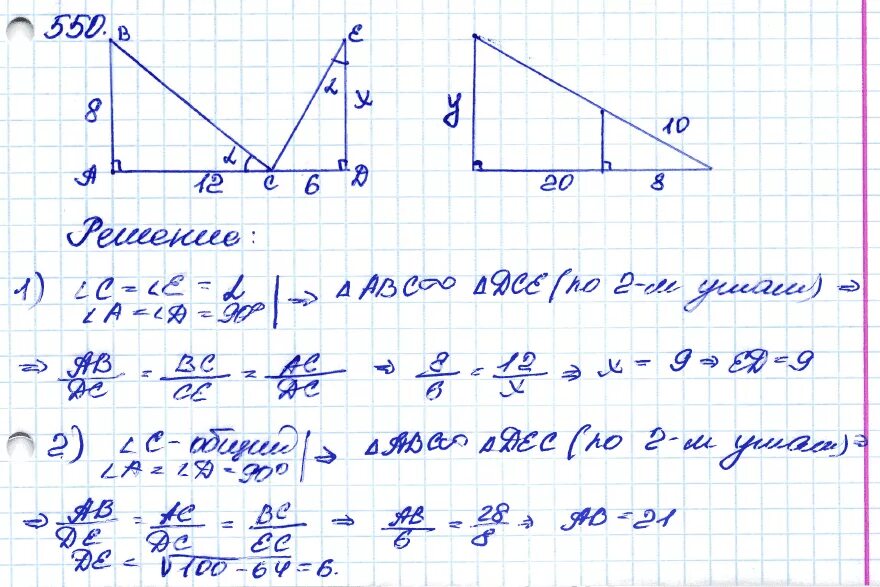 550.
B
E
8
α
α
x
A
12
C
6
D
y
10
20
8
Решение:
1) ∠C = ∠E = α | ⇒ △ABC ∞ △DCE (по 2-м углам) ⇒
∠A = ∠D = 90°
⇒ AB/DC = BC/CE = AC/DC ⇒ 8/6 = 12/x ⇒ x = 9 ⇒ ED = 9
2) ∠C - общий | ⇒ △ABC ∞ △DEC (по 2-м углам) ⇒
∠A = ∠D = 90°
⇒ AB/DE = AC/DC = BC/EC ⇒ AB/6 = 28/8 ⇒ AB = 21
DE = √100 - 64 = 6.